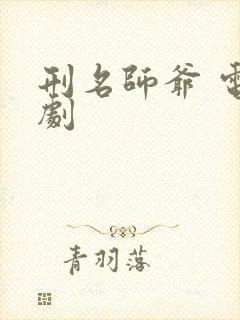 刑名師爺 電
劇
青羽落